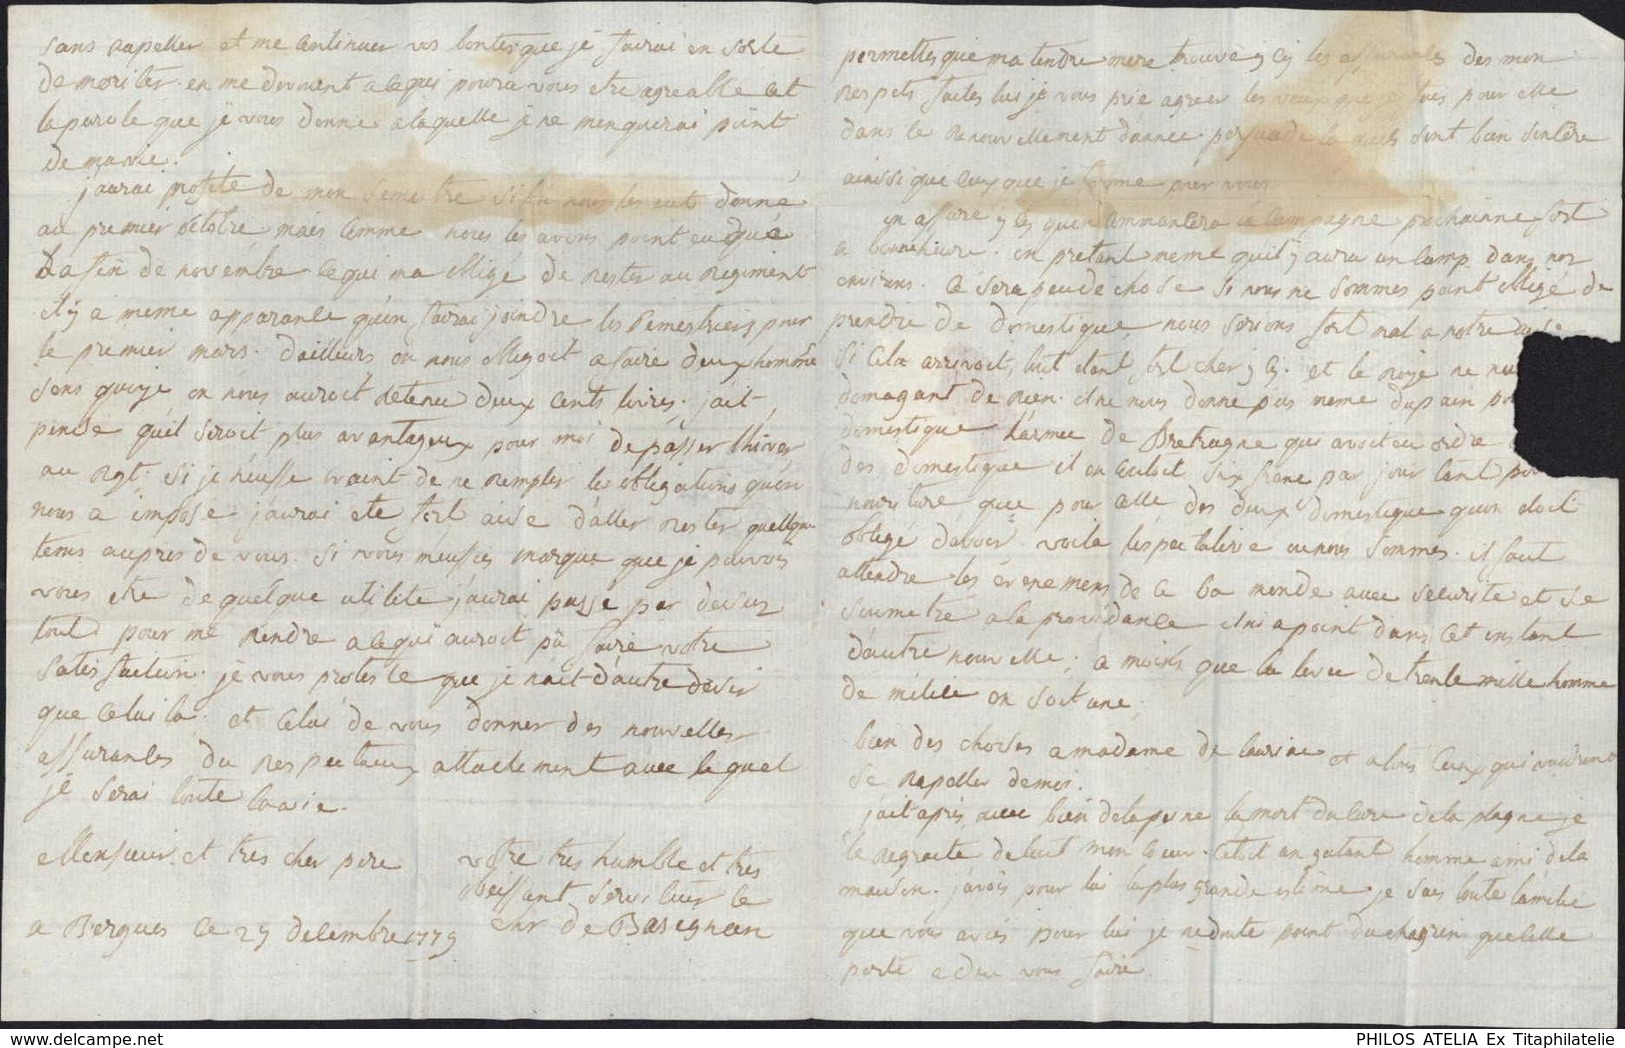 sans rapeller et me continuer vos bontes que je faurai en sorte
de meriter. en me donnent a ce qui poura vous etre agreable cet
la parole que je vous donne a laquelle je ne menquerai point
de ma vie.
jaurai profité de mon semestre si lon nous les eut donné
au premier octobre mais comme nous les avons point eu qué
la fin de novembre. ce qui ma obligé de rester au regiment
il y a meme apparance quon faurai joindre les semestriers pour
le premier mars. dailleurs on nous obligoit a faire deux homme
sens quoi on nous auroit detenu deux cents livres. jait
pensé quil seroit plus avantageux pour moi de passer lhiver
au rgt. si je neusse craint de ne remplir les obligations quon
nous a imposé jaurai eté fort aise daller rester quelque
tems aupres de vous. si vous meussies marqué que je pouvois
vous etre de quelque utilité jaurai passé par dessus
tout pour me rendre a ce qui auroit pû faire votre
satisfaction. je vous proteste que je nait dautre desir
que celui la. et celui de vous donner des nouvelles
assurances du respectueux attachement avec le quel
je serai toute la vie.
Monsieur et tres cher pere
votre tres humble et tres
obeissant serviteur le
chr de Basignan
a Bergues ce 29 decembre 1779
permettes que ma tendre mere trouve y cy les assurances des mon
respets faites lui je vous prie agreer les voeux que je fais pour elle
dans le renouvellement dannee. persuade quils sont bien sincere
ainssi que ceux que je forme pour vous
on assure y cy quon commancera la campagne prochainne fort
a bonneheure. on pretant meme quil y aura un camp dans nos
environs. ce sera peu de chose si nous ne sommes point obligé de
prendre de domestique nous serions fort mal a notre aise
si cela arrivoit, tout etant fort cher y cy. et le roye ne nous
domagant de rien. il ne nous donne pas meme du pain pour
domestique larmee de Bretagne qui avoit eu ordre
des domestique il en coutoit six franc par jour tant pour
nouriture que pour celle des deux domestique quon etoit
obligé davoir. voila lespectative ou nous sommes. il faut
attendre les evenemens de ce ba monde avec securité et se
soumetre a la providance il ni a point dans cet instant
dautre nouvelle; a moins que la levee de trente mille homme
de milice on soit une.
bien des choses a madame de laurine et a tous ceux qui voudront
se rapeller de moi.
jait apris avec bien de la peine la mort du curé de la plagne je
le regraite de tout mon coeur. cetoit un galant homme ami de la
maison. javois pour lui la plus grande estime. je sais toute lamitié
que vous avies pour lui je ne doute point du chagrin que cette
perte a du vous faire.
PHILOS ATELIA Ex Titaphilatelie